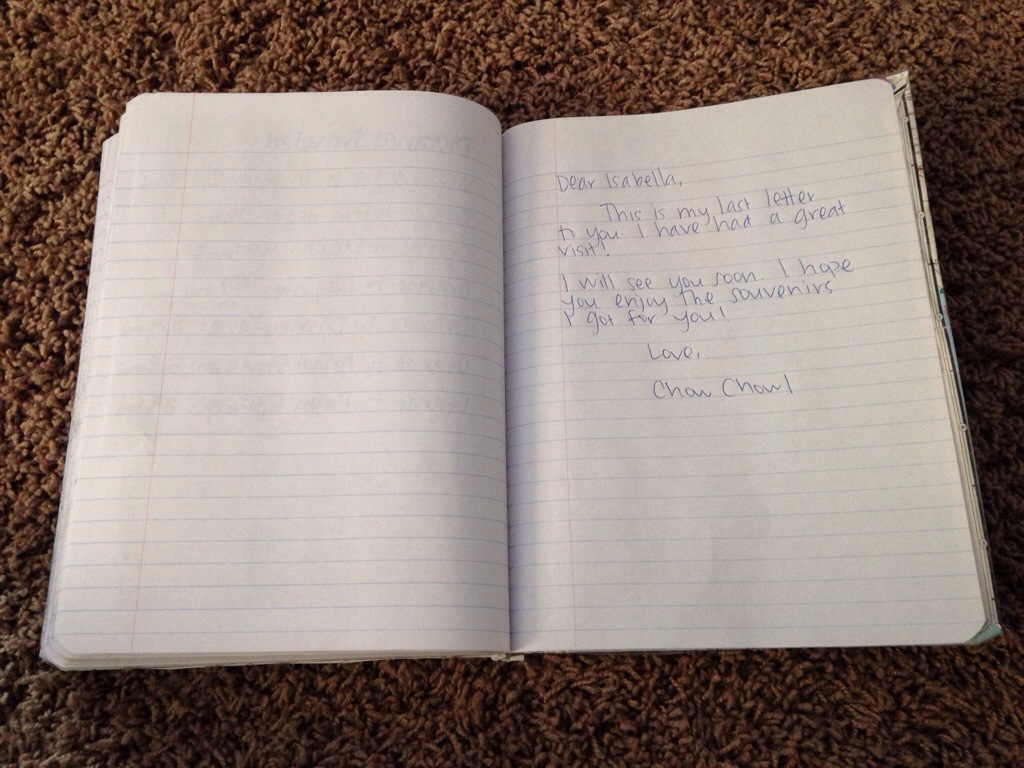 Dear Isabella,
This is my last letter
to you. I have had a great
visit!
I will see you soon. I hope
you enjoy the souvenirs
I got for you!
Love,
Chow Chow!